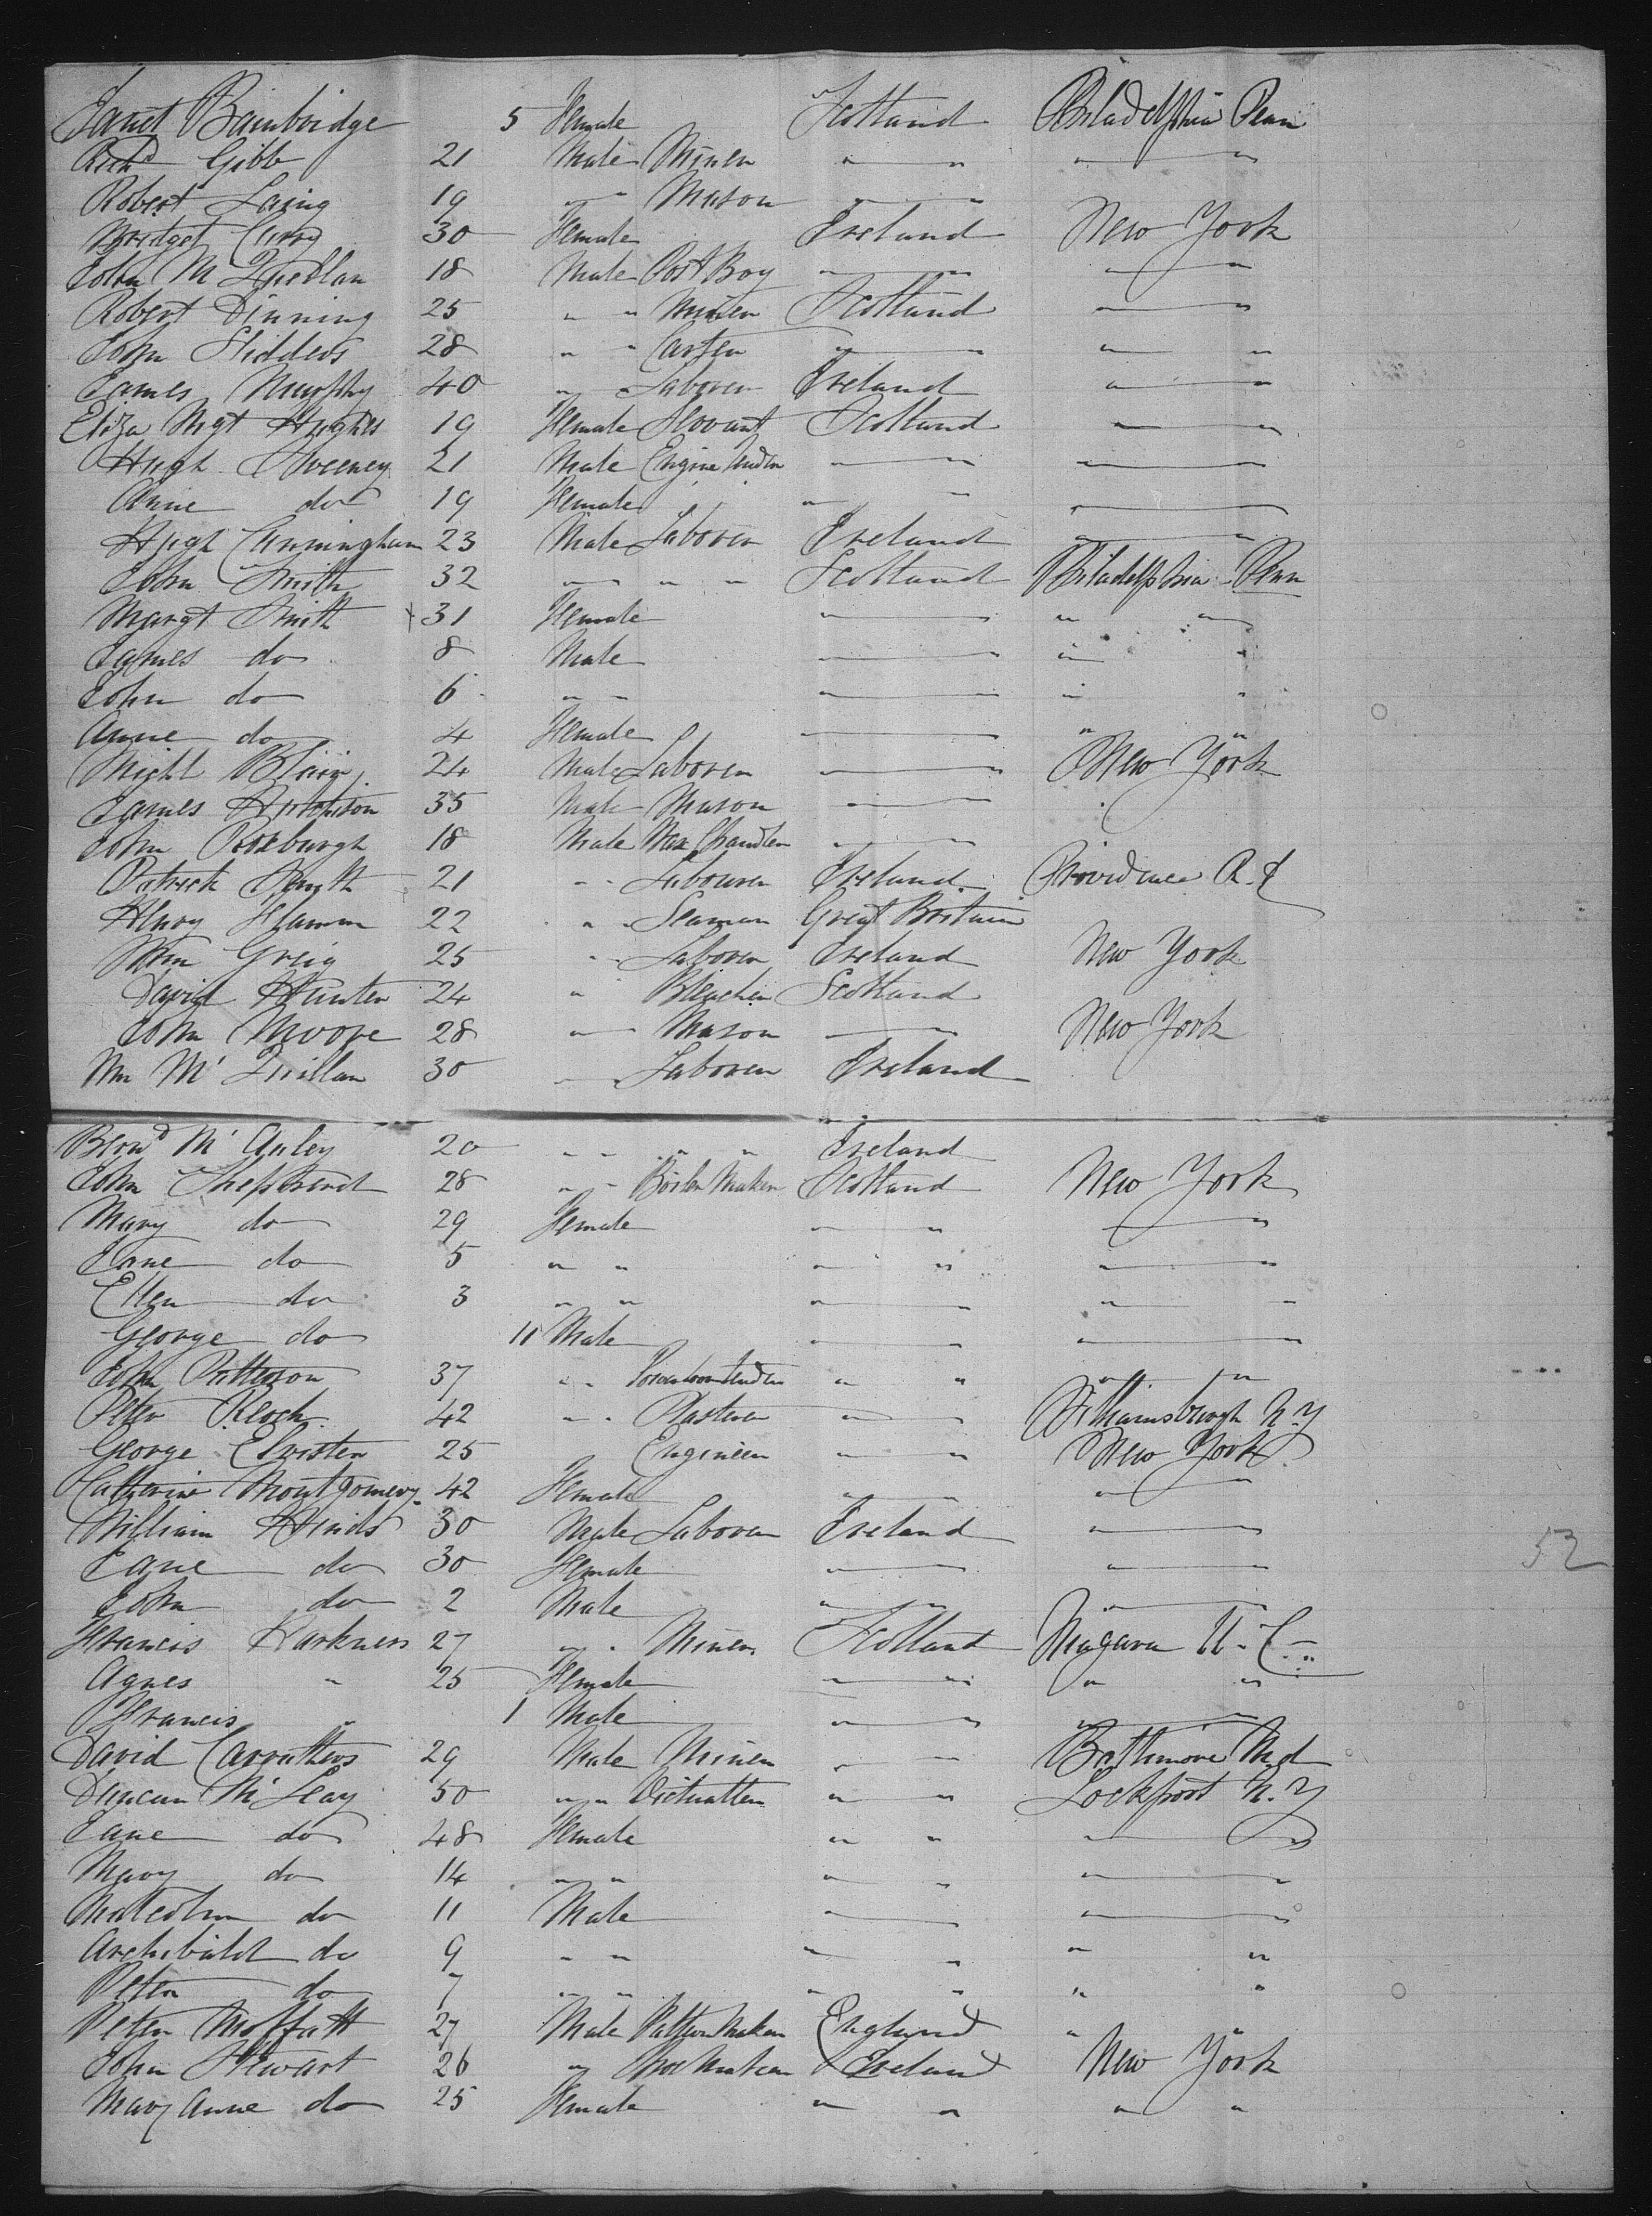 Janet Bainbridge 5 Female Scotland Philadelphia Penn
Richd Gibb 21 Male Miner " " " "
Robert Laing 19 " " Mason " "
Bridget Curry 30 Female Ireland New York
John McQuillan 18 Male Post Boy " " " "
Robert Dinning 25 " " Miner Scotland " "
John Skidders 28 " " Carter " " " "
James Murphy 40 " Laborer Ireland " "
Eliza Mgt Hughes 19 Female Servant Scotland " "
Hugh Sweeney 21 Male Engine " " " "
Anne do 19 Female " " " "
Hugh Cunningham 23 Male Laborer Ireland " "
John Smith 32 " " " " Scotland Philadelphia Penn
Margt Smith 31 Female " " " "
James do 8 Male " " " "
John do 6 " " " " " "
Anne do 4 Female " " " "
Michl Blair 24 Male Laborer " " New York
James Hutchison 35 Male Mason " " "
John Roxburgh 18 Male Wax Chandler " "
Patrick Smyth 21 " " Labourer Ireland Providence R. I
Henry Hamm 22 " " Seaman Great Britain
Wm Greig 25 " " Laborer Ireland New York
David Hunter 24 " Bleacher Scotland
John Moore 28 " " Mason " " New York
Wm McQuillan 30 " " Laborer Ireland
Bernd McAuley 20 " " " " Ireland
John Shepherd 28 " " Boiler Maker Scotland New York
Mary do 29 Female " " " "
Jane do 5 " " " " " "
Ellen do 3 " " " " " "
George do 11 Male " " " "
John Patterson 37 " " " " " "
Peter Kloch 42 " " Plasterer " " Williamsburgh N. Y
George 25 Engineer " " New York
Catherine Montgomery 42 Female " " " "
William Hinds 30 Male Laborer Ireland " "
Jane do 30 Female " " " "
John do 2 Male " " " "
Francis Harkness 27 " " Miner Scotland Niagara U. C
Agnes " 25 Female " " " "
Francis " 1 Male " " " "
David Carruthers 29 Male Miner " " Baltimore Md
Duncan McLeay 50 " " Victualler " " Lockport N. Y
Jane do 48 Female " " " "
Mary do 14 " " " " " "
Malcolm do 11 Male " " " "
Archibald do 9 " " " " " "
Peter do 7 " " " " " "
Peter Moffatt 27 Male Pattern Maker England " "
John Stewart 26 " Shoe Maker Ireland New York
Mary Anne do 25 Female " " " "
52